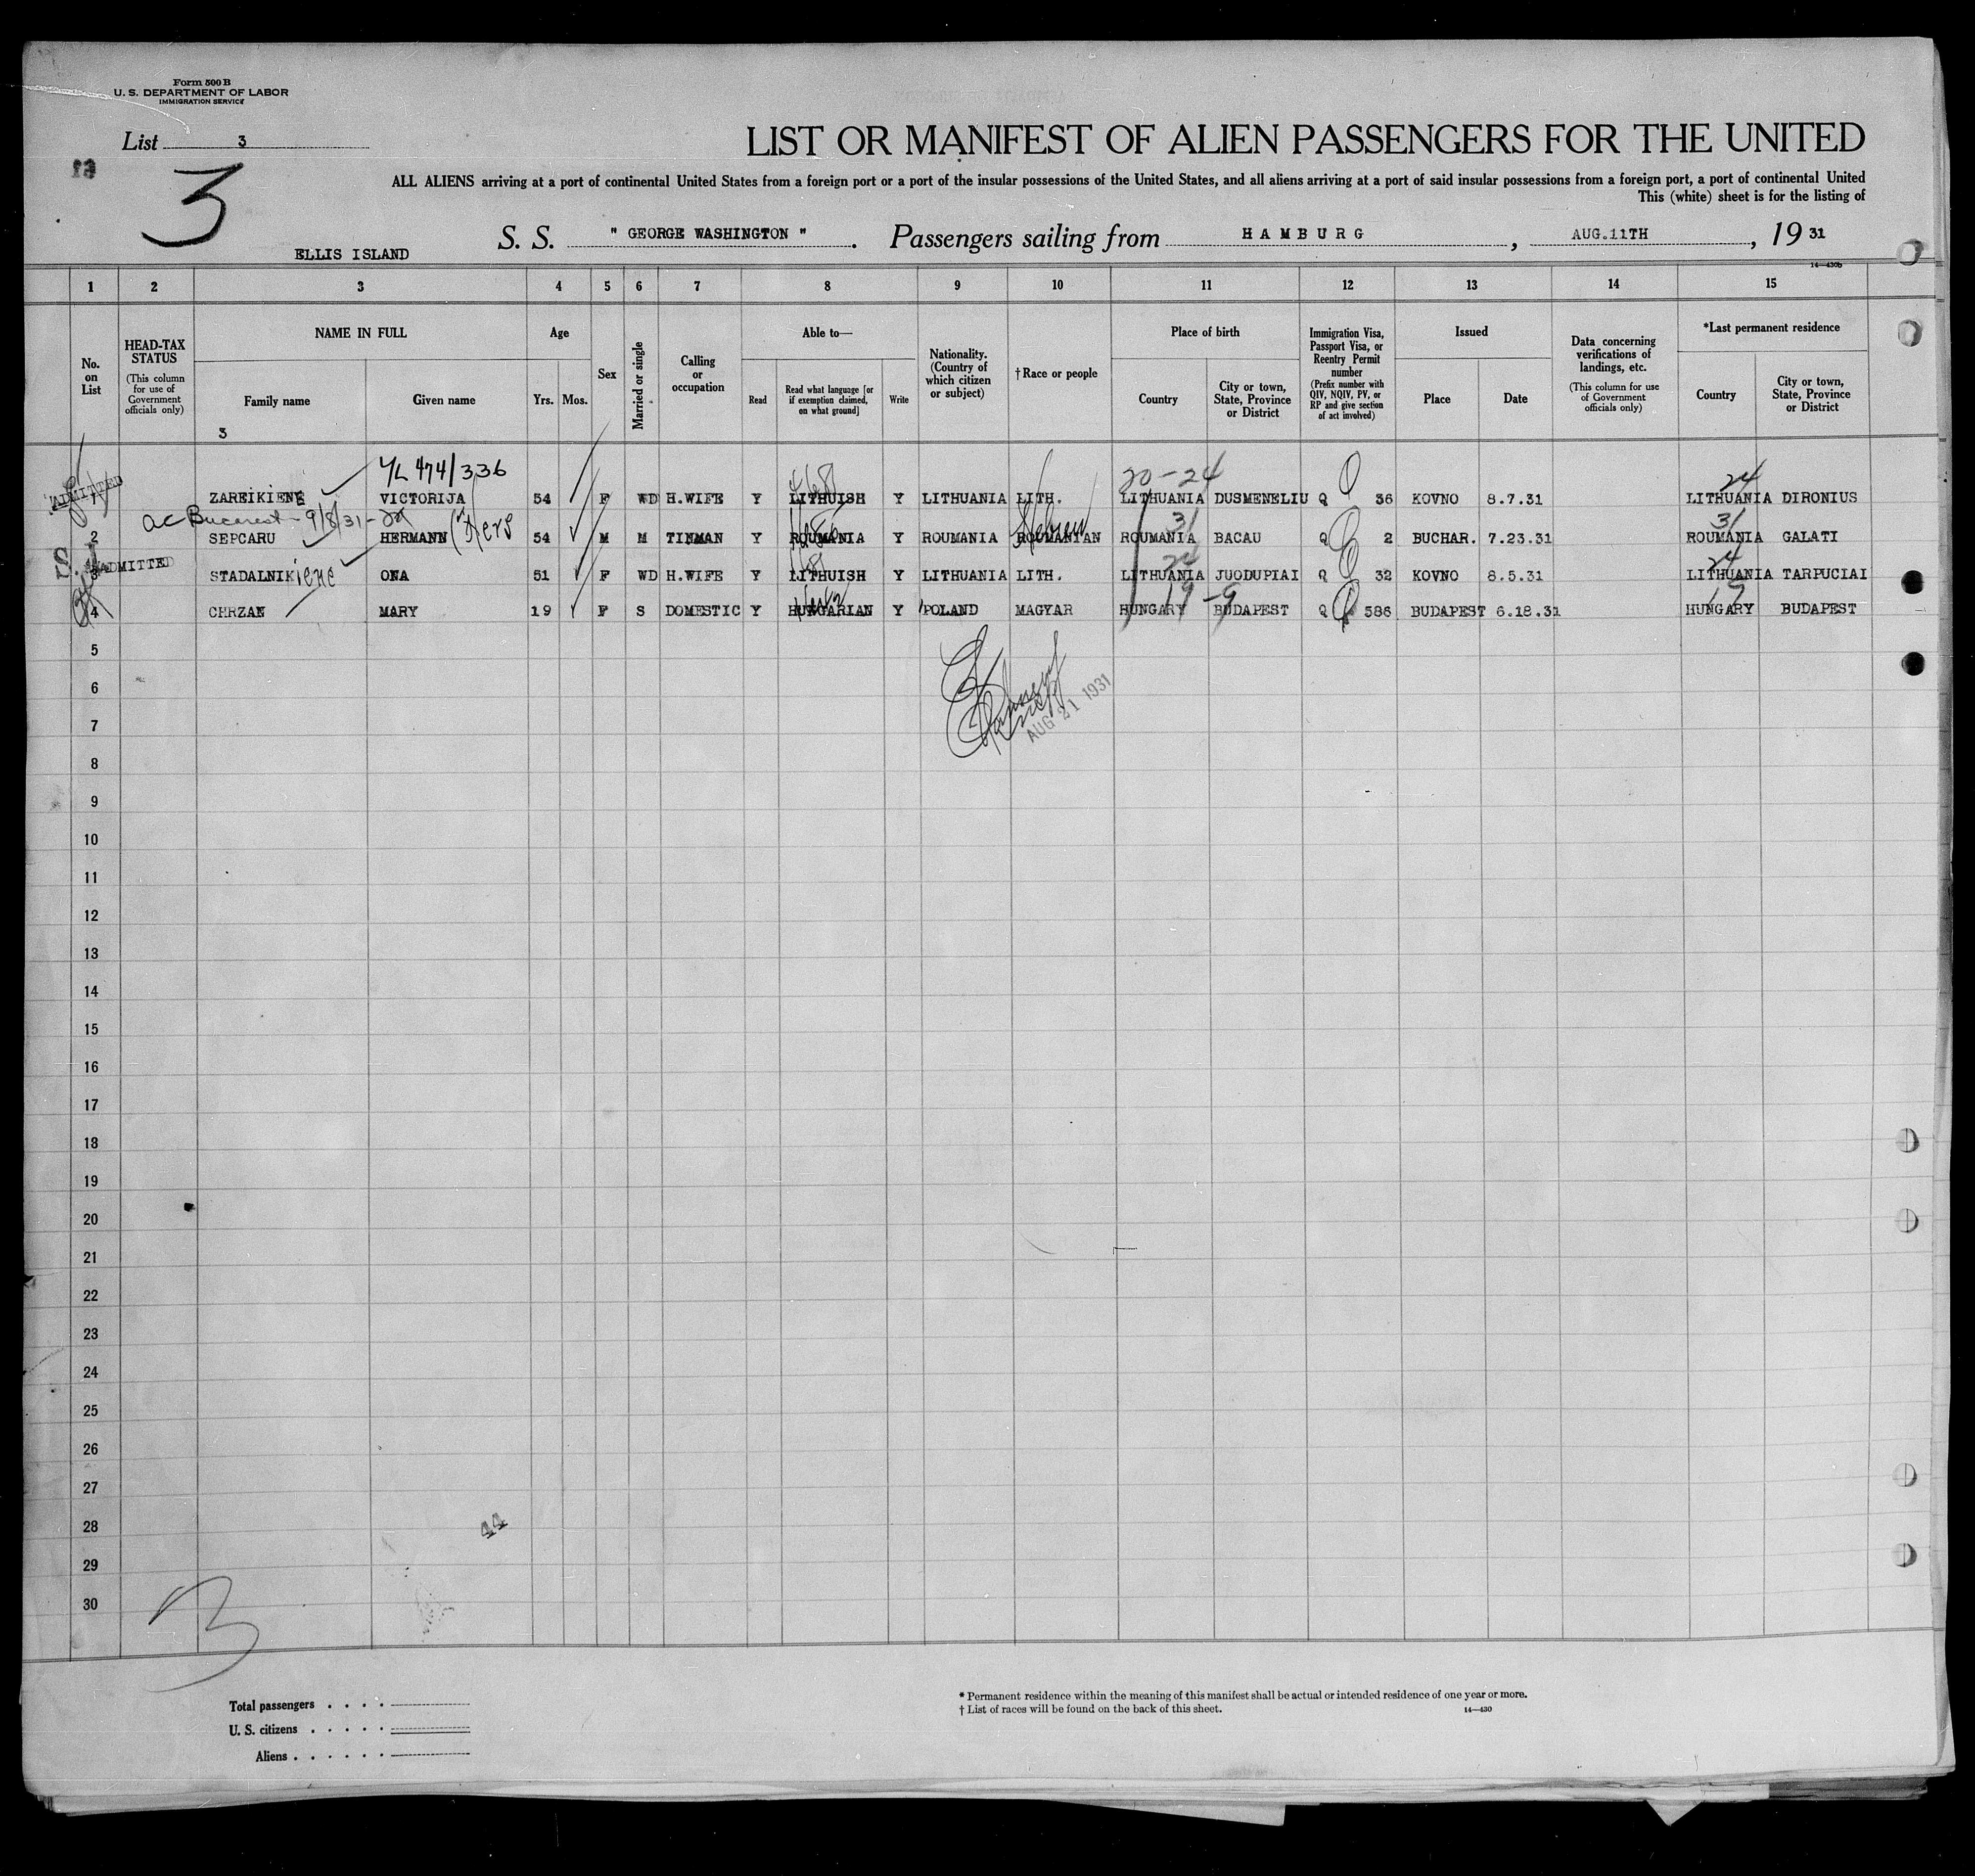 Form 500 B
U. S. DEPARTMENT OF LABOR
IMMIGRATION SERVICE
List 3
3
LIST OR MANIFEST OF ALIEN PASSENGERS FOR THE UNITED
ALL ALIENS arriving at a port of continental United States from a foreign port or a port of the insular possessions of the United States, and all aliens arriving at a port of said insular possessions from a foreign port, a port of continental United
This (white) sheet is for the listing of
ELLIS ISLAND
S. S. " GEORGE WASHINGTON ". Passengers sailing from HAMBURG, AUG.11TH, 19 31
14—430b
1 2 3 4 5 6 7 8 9 10 11 12 13 14 15
No. on List
HEAD-TAX STATUS (This column for use of Government officials only)
NAME IN FULL
Family name
Given name
Age
Yrs. Mos.
Sex
Married or single
Calling or occupation
Able to—
Read
Read what language [or if exemption claimed, on what ground]
Write
Nationality. (Country of which citizen or subject)
† Race or people
Place of birth
Country
City or town, State, Province or District
Immigration Visa, Passport Visa, or Reentry Permit number (Prefix number with QIV, NQIV, PV, or RP and give section of act involved)
Issued
Place
Date
Data concerning verifications of landings, etc. (This column for use of Government officials only)
*Last permanent residence
Country
City or town, State, Province or District
3
474/336 468 20-24 24
ADMITTED 1 ZAREIKIENE VICTORIJA 54 F WD H.WIFE Y LITHUISH Y LITHUANIA LITH. LITHUANIA DUSMENELIU Q 36 KOVNO 8.7.31 LITHUANIA DIRONIUS
Bucarest - 9/8/31 Hebrew 31 31
2 SEPCARU HERMANN 54 M M TINMAN Y ROUMANIA Y ROUMANIA ROUMANIAN ROUMANIA BACAU Q 2 BUCHAR. 7.23.31 ROUMANIA GALATI
S. I. ADMITTED 24 24
3 STADALNIKIENE ONA 51 F WD H.WIFE Y LITHUISH Y LITHUANIA LITH. LITHUANIA JUODUPIAI Q 32 KOVNO 8.5.31 LITHUANIA TARPUCIAI
19 - 9 19
4 CHRZAN MARY 19 F S DOMESTIC Y HUNGARIAN Y POLAND MAGYAR HUNGARY BUDAPEST Q 586 BUDAPEST 6.18.31 HUNGARY BUDAPEST
5
6
7
AUG 21 1931
8
9
10
11
12
13
14
15
16
17
18
19
20
21
22
23
24
25
26
27
28
44
29
30
3
Total passengers . . . .
U. S. citizens . . . . .
Aliens . . . . . .
* Permanent residence within the meaning of this manifest shall be actual or intended residence of one year or more.
† List of races will be found on the back of this sheet. 14—430